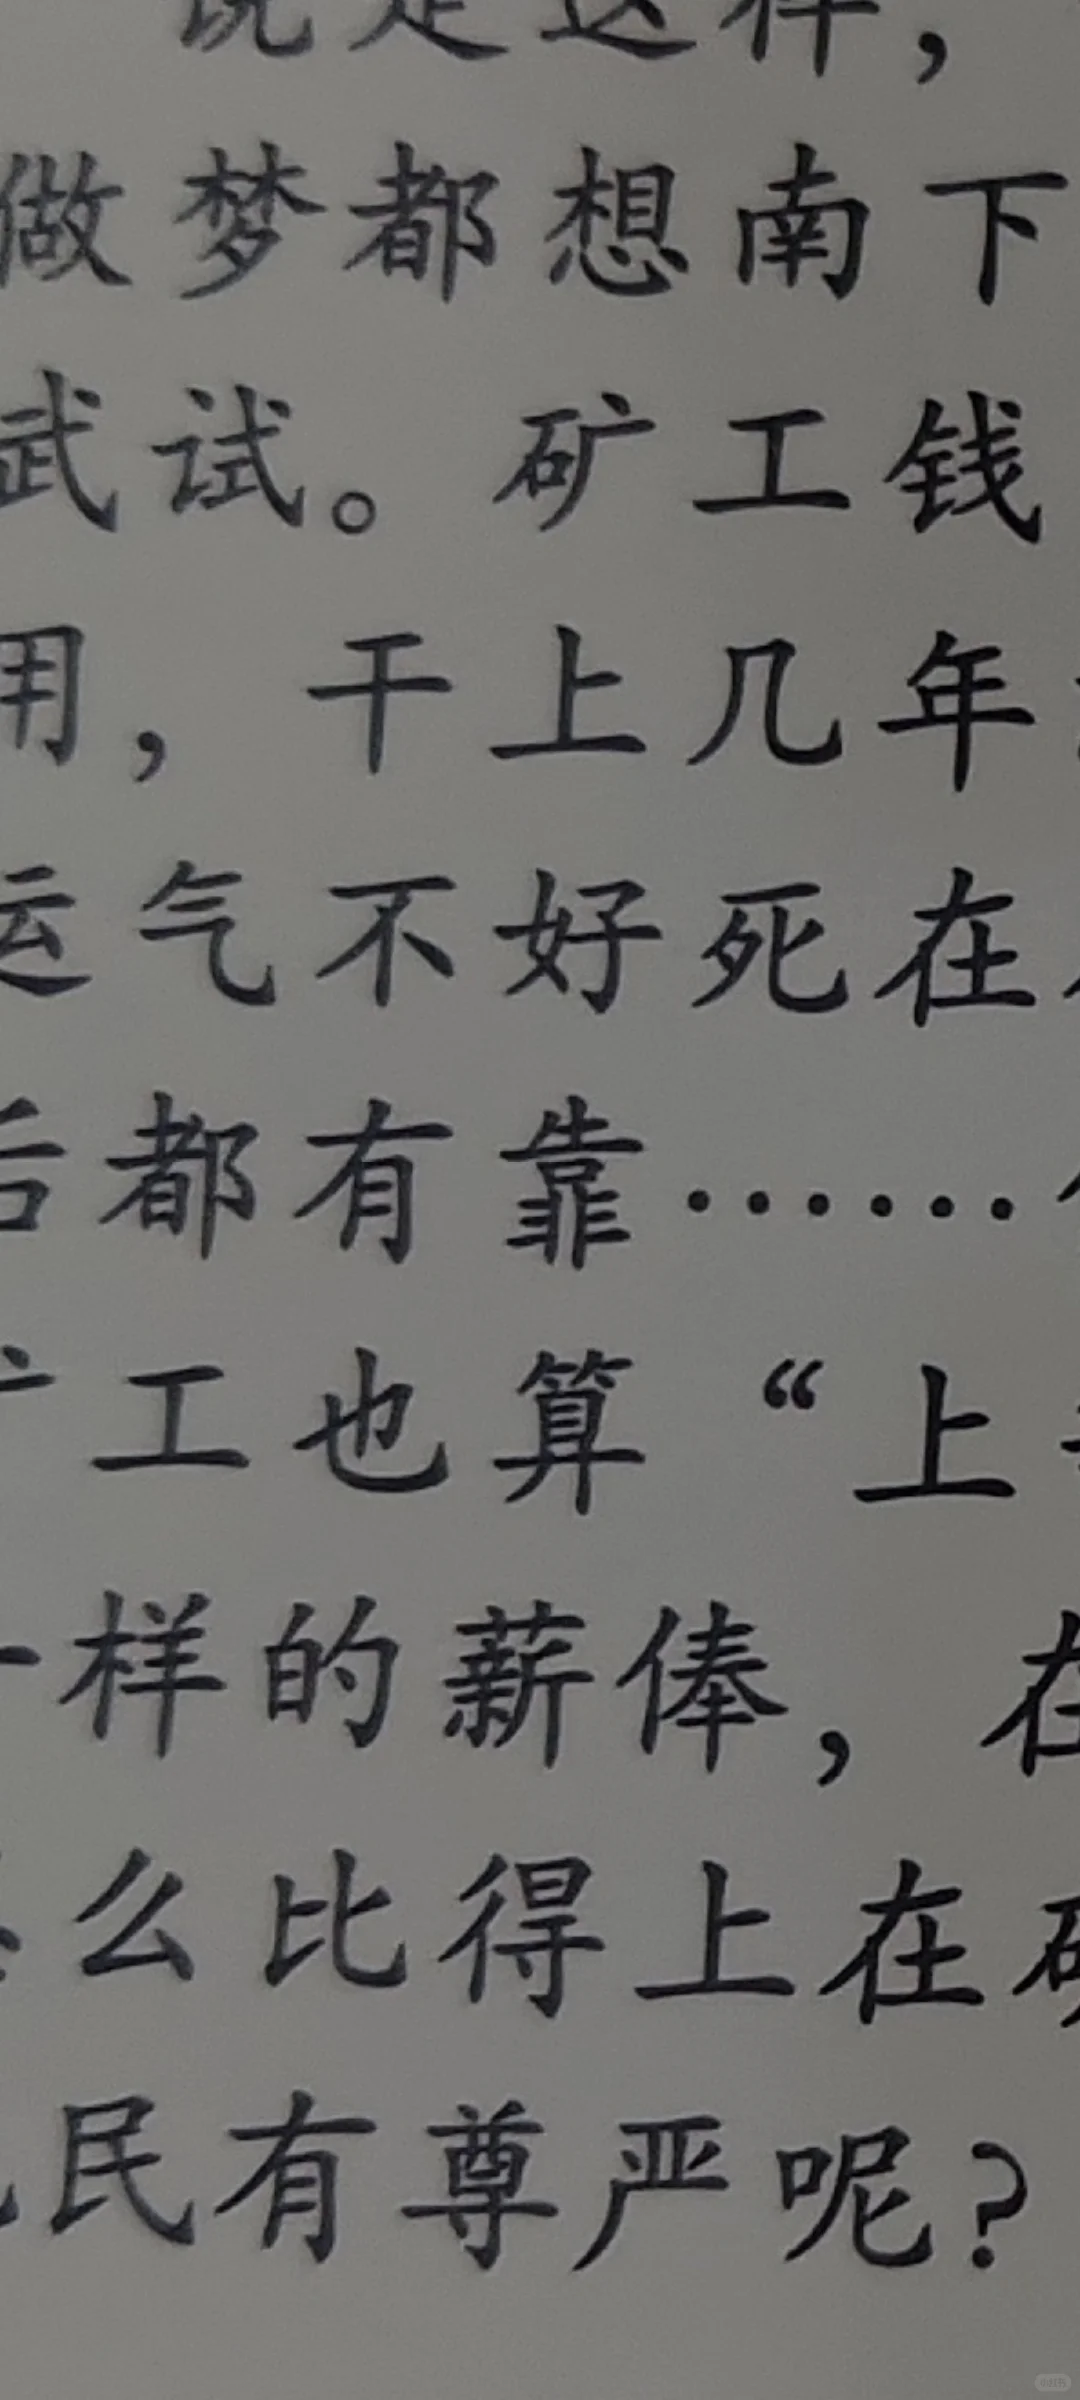 说是这样，
做梦都想南下
武试。矿工钱
用，干上几年
运气不好死在
后都有靠……
工也算“上
一样的薪俸，在
么比得上在
民有尊严呢？